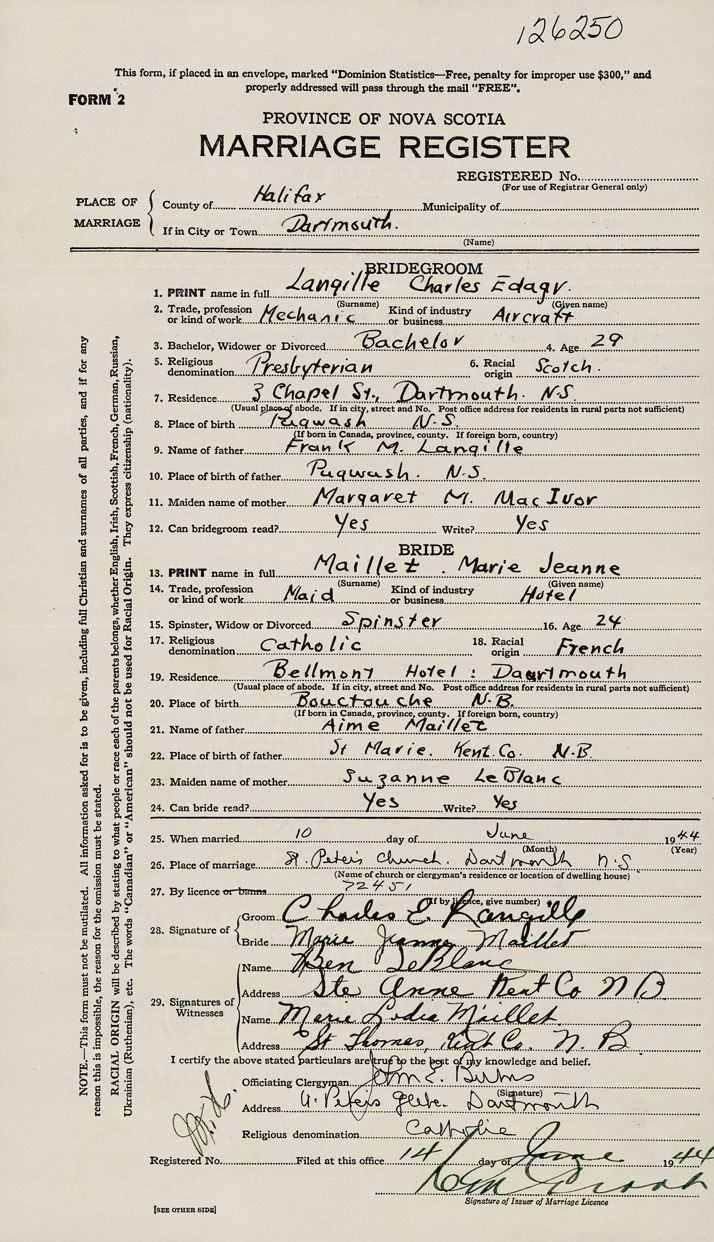 126250
This form, if placed in an envelope, marked "Dominion Statistics—Free, penalty for improper use $300," and
properly addressed will pass through the mail "FREE".
FORM 2
PROVINCE OF NOVA SCOTIA
MARRIAGE REGISTER
REGISTERED No.
(For use of Registrar General only)
PLACE OF MARRIAGE
County of Halifax Municipality of
If in City or Town Dartmouth.
(Name)
BRIDEGROOM
1. PRINT name in full Langille Charles Edagr.
(Surname) (Given name)
2. Trade, profession or kind of work Mechanic Kind of industry or business Aircraft
3. Bachelor, Widower or Divorced Bachelor 4. Age 29
5. Religious denomination Presbyterian 6. Racial origin Scotch.
7. Residence 3 Chapel St., Dartmouth. N.S.
(Usual place of abode. If in city, street and No. Post office address for residents in rural parts not sufficient)
8. Place of birth Pugwash N.S.
(If born in Canada, province, county. If foreign born, country)
9. Name of father Frank M. Langille
10. Place of birth of father Pugwash. N.S.
11. Maiden name of mother Margaret M. MacIvor
12. Can bridegroom read? Yes Write? Yes
BRIDE
13. PRINT name in full Maillet. Marie Jeanne
(Surname) (Given name)
14. Trade, profession or kind of work Maid Kind of industry or business Hotel
15. Spinster, Widow or Divorced Spinster 16. Age 24
17. Religious denomination Catholic 18. Racial origin French
19. Residence Bellmont Hotel: Daartmouth
(Usual place of abode. If in city, street and No. Post office address for residents in rural parts not sufficient)
20. Place of birth Bouctouche N.B.
(If born in Canada, province, county. If foreign born, country)
21. Name of father Aime Maillet
22. Place of birth of father St Marie. Kent.Co. N.B.
23. Maiden name of mother Suzanne LeBlanc
24. Can bride read? Yes Write? Yes
25. When married 10 day of June 1944
(Month) (Year)
26. Place of marriage St. Peter's Church. Dartmouth N.S
(Name of church or clergyman's residence or location of dwelling house)
27. By licence or banns 72451
(If by licence, give number)
28. Signature of
Groom Charles E. Langille
Bride Marie Jeanne Maillet
29. Signatures of Witnesses
Name Ben LeBlanc
Address Ste Anne Kent Co N B
Name Marie Lydia Maillet
Address St Thomas, Kent Co. N. B
I certify the above stated particulars are true to the best of my knowledge and belief.
Officiating Clergyman John E. Burns
(Signature)
Address St. Peters Glebe. Dartmouth
Religious denomination Catholic
Registered No. Filed at this office 14 day of June 1944
Signature of Issuer of Marriage Licence
[SEE OTHER SIDE]
NOTE.—This form must not be mutilated. All information asked for is to be given, including full Christian and surnames of all parties, and if for any
reason this is impossible, the reason for the omission must be stated.
RACIAL ORIGIN will be described by stating to what people or race each of the parents belongs, whether English, Irish, Scottish, French, German, Russian,
Ukrainian (Ruthenian), etc. The words "Canadian" or "American" should not be used for Racial Origin. They express citizenship (nationality).